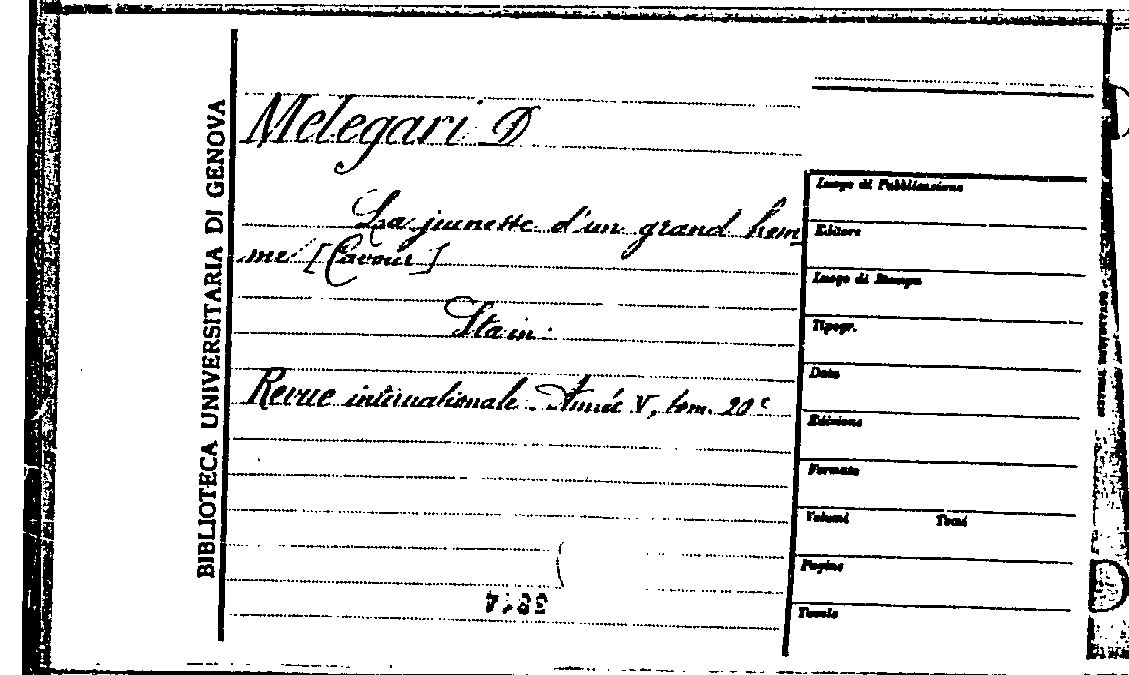 BIBLIOTECA UNIVERSITARIA DI GENOVA
Melegari D
La jeunesse d'un grand hom
me [Cavour]
Sta in:
Revue internationale. Année V, tom. 20º
Luogo di Pubblicazione
Editore
Luogo di Stampa
Tipogr.
Data
Edizione
Formato
Volumi Tomi
Pagine
Tavole